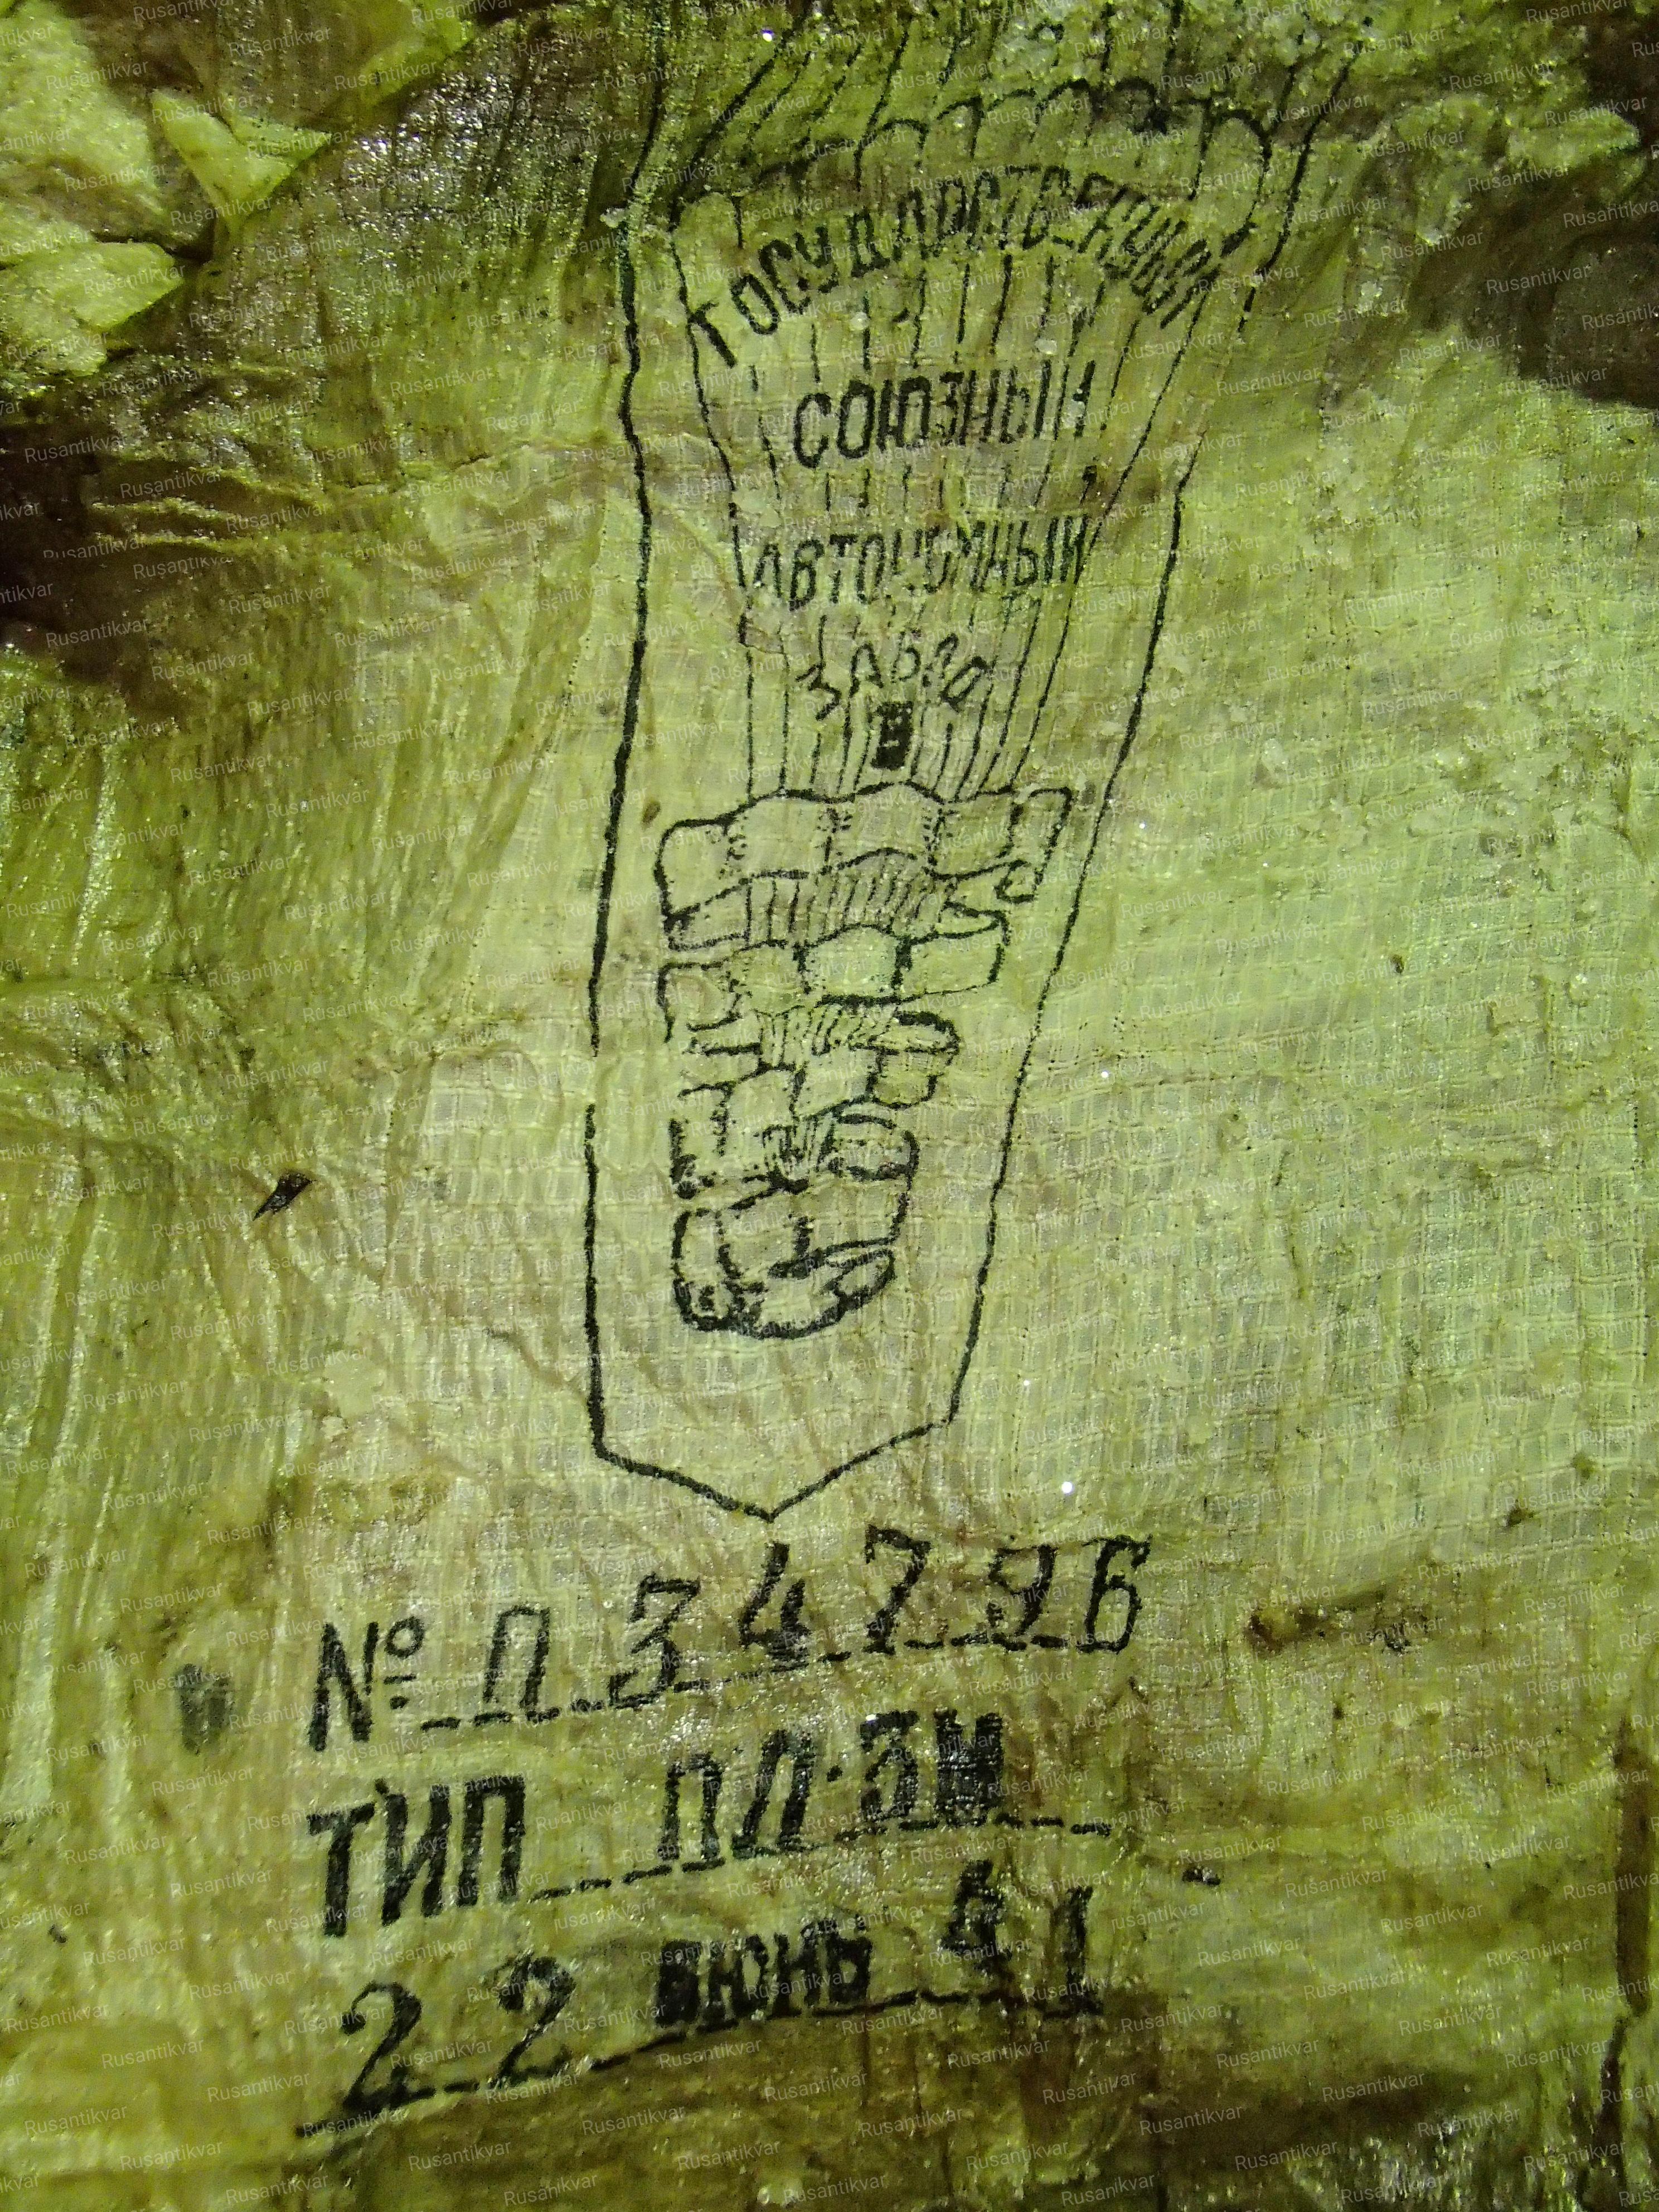 ГОСУДАРСТВЕННЫЙ
СОЮЗНЫЙ
АВТОНОМНЫЙ
ЗАВОД
№ П34796
ТИП ПД-3М
22 июнь 41
Rusantikvar